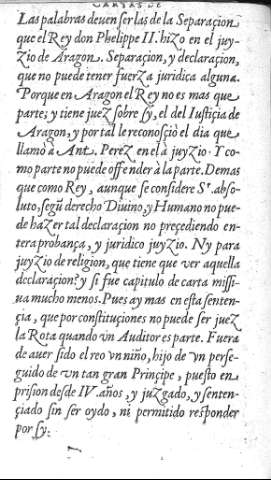 CARTAS DE
Las palabras deuen ser las de la Separaçion
que el Rey don Phelippe II. hizo en el juy-
zio de Aragon. Separaçion, y declaraçion,
que no puede tener fuerza juridica alguna.
Porque en Aragon el Rey no es mas que
parte, y tiene juez sobre sy, el del Iustiçia de
Aragon, y por tal le reconosçió el dia que
llamó a Ant. Perez en el à juyzio. Y co-
mo parte no puede offender à la parte. Demas
que como Rey, aunque se considere Sr. abso-
luto, segũ derecho Diuino, y Humano no pue-
de hazer tal declaraçion no preçediendo en-
tera probança, y juridico juyzio. Ny para
juyzio de religion, que tiene que ver aquella
declaraçion? y si fue capitulo de carta missi-
ua mucho menos. Pues ay mas en esta senten-
çia, que por constituçiones no puede ser juez
la Rota quando vn Auditor es parte. Fuera
de auer sido el reo vn niño, hijo de vn perse-
guido de vn tan gran Prinçipe, puesto en
prision desde IV. años, y juzgado, y senten-
çiado sin ser oydo, ni permitido responder
por sy.